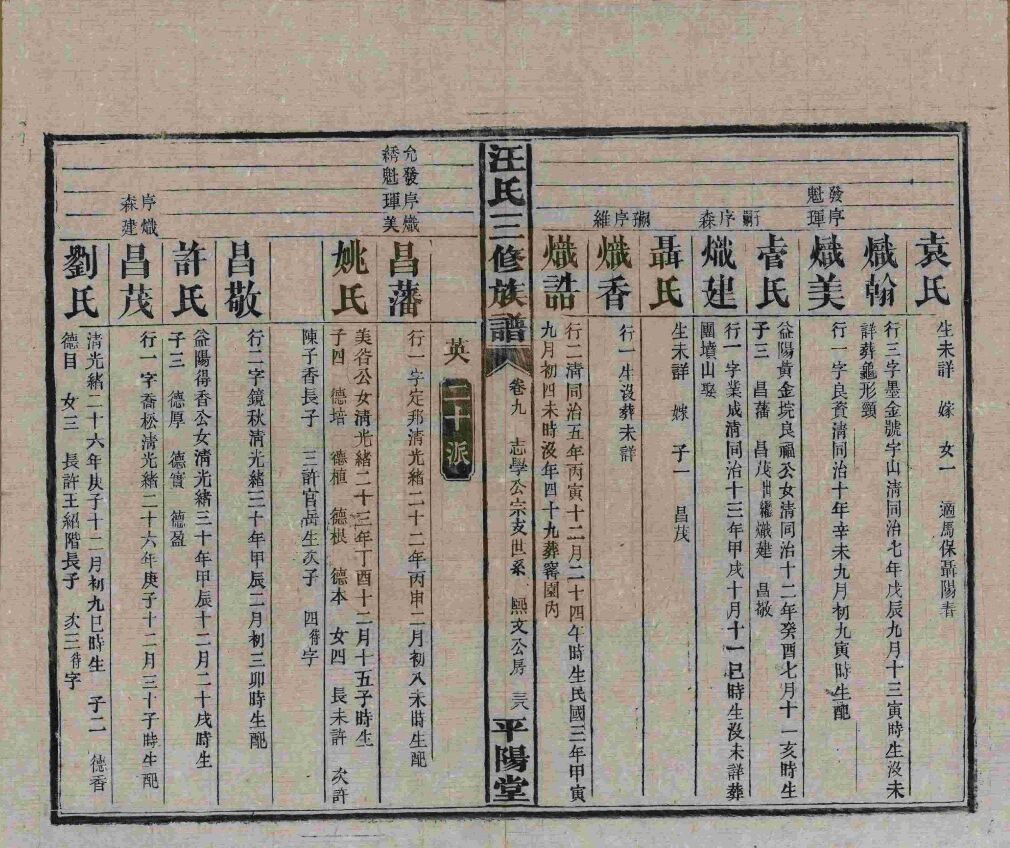 袁氏
生未詳 嫁 女一 適馬保聶陽春
熾翰
行三字墨金號宇山清同治七年戊辰九月十三寅時生沒未
詳葬龜形頸
發序
魁琿
熾美
行一字良資清同治十年辛未九月初九寅時生配
袁氏
益陽黃金垸良福公女清同治十二年癸酉七月十一亥時生
子三 昌藩 昌茂出繼熾建 昌敬
嗣序森
熾建
行一字業成清同治十三年甲戌十月十一巳時生沒未詳葬
團墳山娶
聶氏
生未詳 嫁 子一 昌茂
瑚序維
熾香
行一生沒葬未詳
熾誥
行二清同治五年丙寅十二月二十四午時生民國三年甲寅
九月初四未時沒年四十九葬窰園內
汪氏三修族譜
卷九 志學公宗支世系 熙文公房 三六
平陽堂
英 二十派
允發序熾
綉魁琿美
昌藩
行一字定邦清光緒二十二年丙申二月初八未時生配
姚氏
美省公女清光緒二十三年丁酉十二月十五子時生
子四 德培 德植 德根 德本 女四 長未許 次許
陳子香長子 三許官岳生次子 四待字
昌敬
行二字鏡秋清光緒三十年甲辰二月初三卯時生配
許氏
益陽得香公女清光緒三十年甲辰十二月二十戌時生
子三 德厚 德實 德盈
序熾
森建
昌茂
行一字喬松清光緒二十六年庚子十二月三十子時生配
劉氏
清光緒二十六年庚子十二月初九巳時生 子二 德香
德目 女三 長許王紹階長子 次三待字